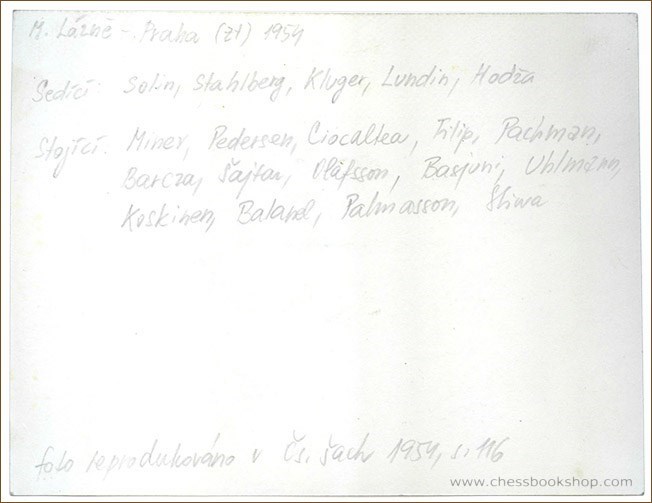 M. Lázně - Praha (zt) 1954
Sedící: Solin, Stahlberg, Kluger, Lundin, Hodža
Stojící: Minev, Pedersen, Ciocaltea, Filip, Pachman,
Barcza, Šajtar, Olafsson, Basjuni, Uhlmann,
Koskinen, Balanel, Palmasson, Sliwa
foto reprodukováno v Čs. šach 1954, s. 116
www.chessbookshop.com